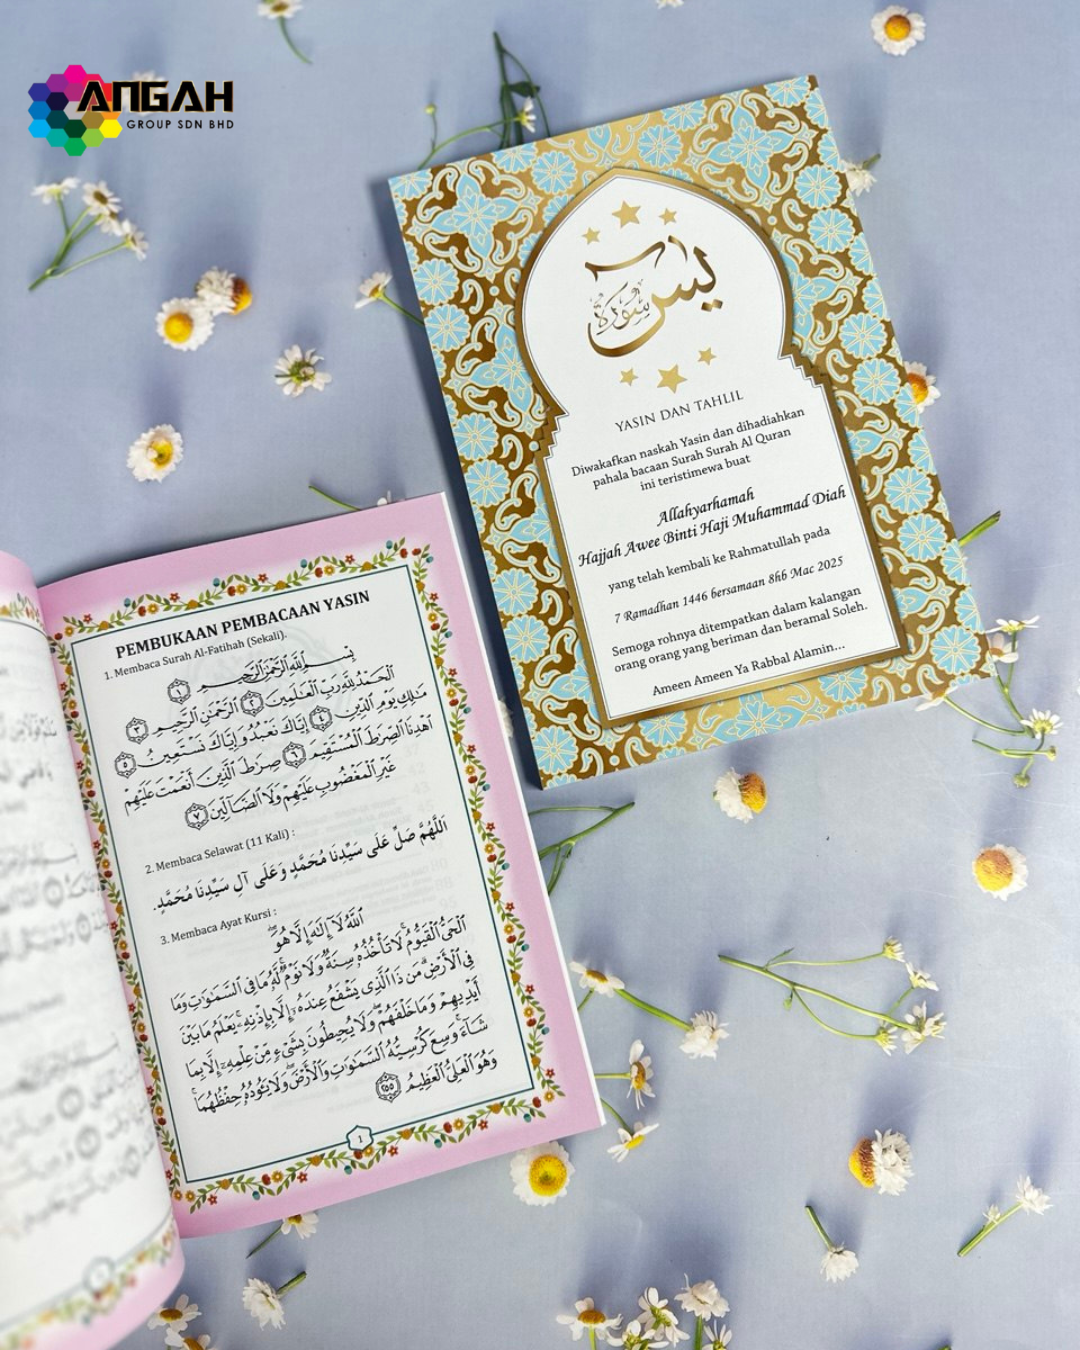 ANGAH
GROUP SDN BHD
يس
سورة
YASIN DAN TAHLIL
Diwakafkan naskah Yasin dan dihadiahkan
pahala bacaan Surah Surah Al Quran
ini teristimewa buat
Allahyarhamah
Hajjah Awee Binti Haji Muhammad Diah
yang telah kembali ke Rahmatullah pada
7 Ramadhan 1446 bersamaan 8hb Mac 2025
Semoga rohnya ditempatkan dalam kalangan
orang orang yang beriman dan beramal Soleh.
Ameen Ameen Ya Rabbal Alamin...
PEMBUKAAN PEMBACAAN YASIN
1. Membaca Surah Al-Fatihah (Sekali).
بِسْمِ اللَّهِ الرَّحْمَٰنِ الرَّحِيمِ ١
الْحَمْدُ لِلَّهِ رَبِّ الْعَالَمِينَ ٢ الرَّحْمَٰنِ الرَّحِيمِ ٣
مَالِكِ يَوْمِ الدِّينِ ٤ إِيَّاكَ نَعْبُدُ وَإِيَّاكَ نَسْتَعِينُ ٥
اهْدِنَا الصِّرَاطَ الْمُسْتَقِيمَ ٦ صِرَاطَ الَّذِينَ أَنْعَمْتَ عَلَيْهِمْ
غَيْرِ الْمَغْضُوبِ عَلَيْهِمْ وَلَا الضَّالِّينَ ٧
2. Membaca Selawat (11 Kali) :
اللَّهُمَّ صَلِّ عَلَى سَيِّدِنَا مُحَمَّدٍ وَعَلَى آلِ سَيِّدِنَا مُحَمَّدٍ.
3. Membaca Ayat Kursi :
اللَّهُ لَا إِلَٰهَ إِلَّا هُوَ
الْحَيُّ الْقَيُّومُ لَا تَأْخُذُهُ سِنَةٌ وَلَا نَوْمٌ لَهُ مَا فِي السَّمَاوَاتِ وَمَا
فِي الْأَرْضِ مَنْ ذَا الَّذِي يَشْفَعُ عِنْدَهُ إِلَّا بِإِذْنِهِ يَعْلَمُ مَا بَيْنَ
أَيْدِيهِمْ وَمَا خَلْفَهُمْ وَلَا يُحِيطُونَ بِشَيْءٍ مِنْ عِلْمِهِ إِلَّا بِمَا
شَاءَ وَسِعَ كُرْسِيُّهُ السَّمَاوَاتِ وَالْأَرْضَ وَلَا يَئُودُهُ حِفْظُهُمَا
وَهُوَ الْعَلِيُّ الْعَظِيمُ ٢٥٥
1